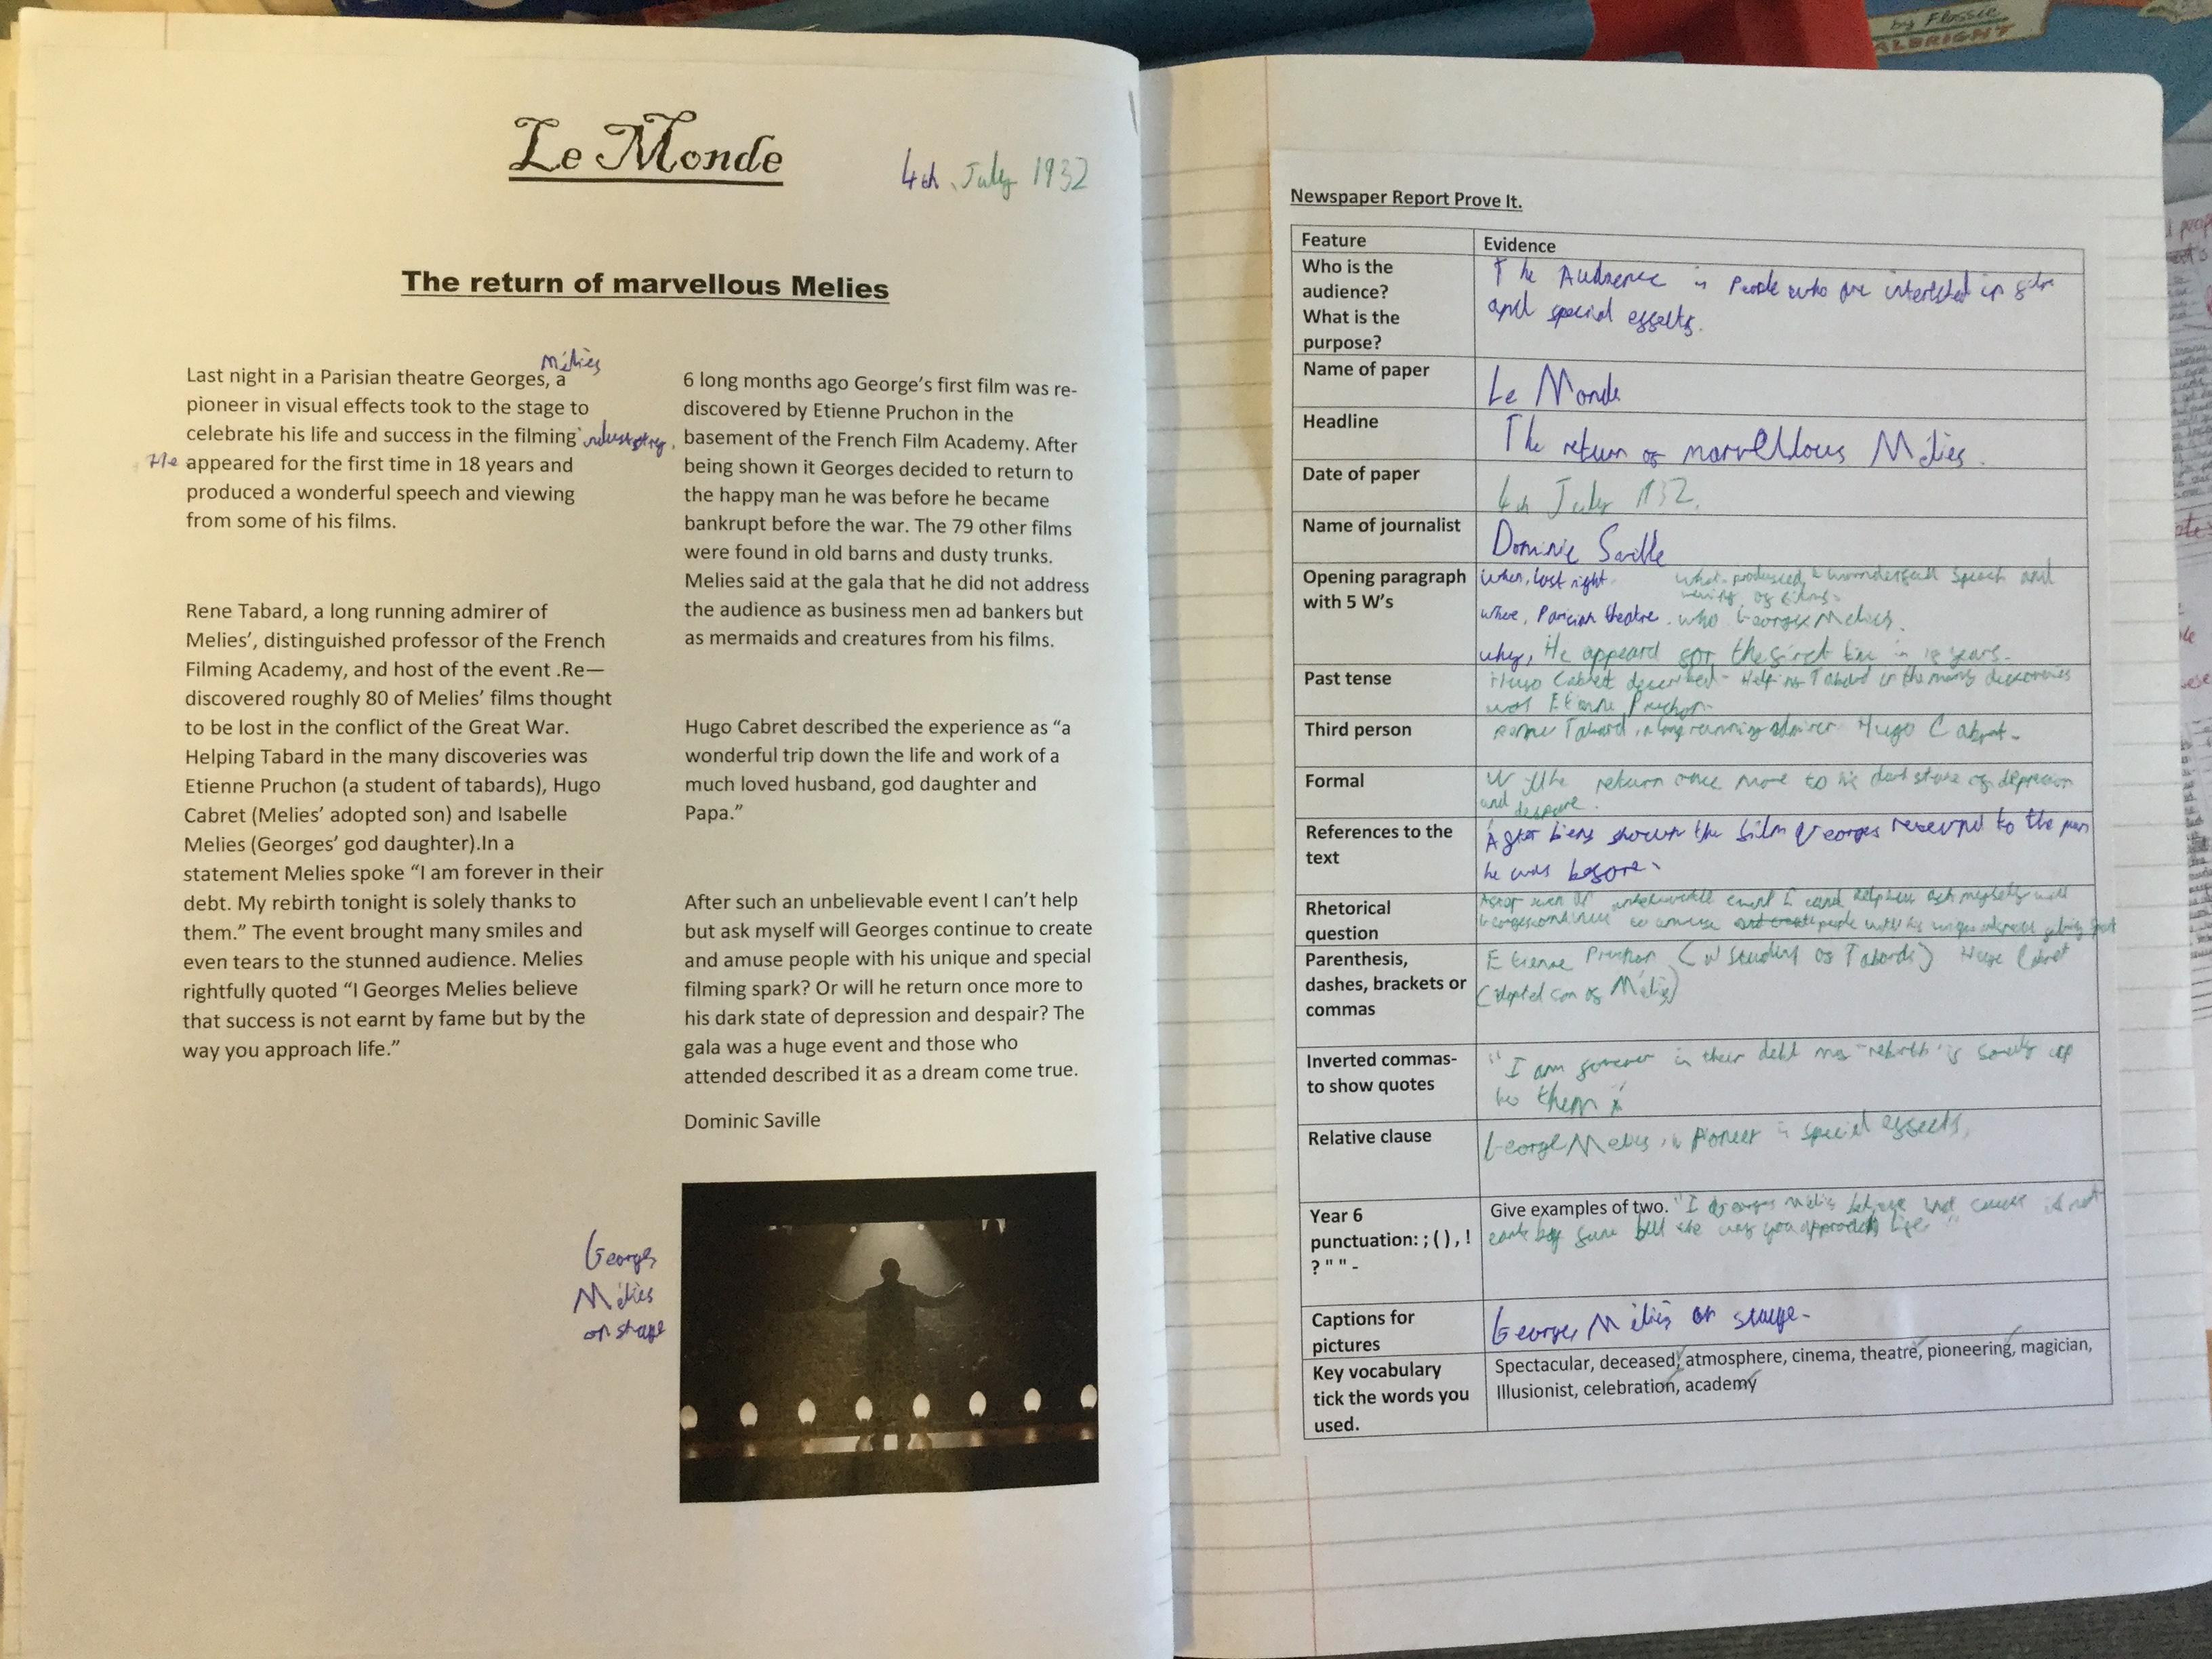 Le Monde
4th July 1932
The return of marvellous Melies
Méliès
Last night in a Parisian theatre Georges, a
pioneer in visual effects took to the stage to
celebrate his life and success in the filming
He appeared for the first time in 18 years and
produced a wonderful speech and viewing
from some of his films.
Rene Tabard, a long running admirer of
Melies’, distinguished professor of the French
Filming Academy, and host of the event .Re—
discovered roughly 80 of Melies’ films thought
to be lost in the conflict of the Great War.
Helping Tabard in the many discoveries was
Etienne Pruchon (a student of tabards), Hugo
Cabret (Melies’ adopted son) and Isabelle
Melies (Georges’ god daughter).In a
statement Melies spoke “I am forever in their
debt. My rebirth tonight is solely thanks to
them.” The event brought many smiles and
even tears to the stunned audience. Melies
rightfully quoted “I Georges Melies believe
that success is not earnt by fame but by the
way you approach life.”
6 long months ago George’s first film was re-
discovered by Etienne Pruchon in the
basement of the French Film Academy. After
being shown it Georges decided to return to
the happy man he was before he became
bankrupt before the war. The 79 other films
were found in old barns and dusty trunks.
Melies said at the gala that he did not address
the audience as business men ad bankers but
as mermaids and creatures from his films.
Hugo Cabret described the experience as “a
wonderful trip down the life and work of a
much loved husband, god daughter and
Papa.”
After such an unbelievable event I can’t help
but ask myself will Georges continue to create
and amuse people with his unique and special
filming spark? Or will he return once more to
his dark state of depression and despair? The
gala was a huge event and those who
attended described it as a dream come true.
Dominic Saville
Georges
Méliès
on stage
by Flossie
ALBRIGHT
Newspaper Report Prove It.
Feature
Evidence
Who is the
audience?
What is the
purpose?
The Audience is People who are intersted in film
and special effects.
Name of paper
Le Monde
Headline
The return of marvellous Mélies.
Date of paper
4th July 1932.
Name of journalist
Dominic Saville
Opening paragraph
with 5 W’s
when, last night. what produced a speach and
of films.
where, Parisian theatre. who Georges Melies.
why, He appeard for the first time in 18 years.
Past tense
Hugo Cabret described - Helping Tabard in the many discoveries
was Etienne Pruchon.
Third person
Tabard, a long running admirer Hugo Cabret.
Formal
Will he return once more to his dark state of depression
and despare.
References to the
text
After being shown the film Georges to the man
he was before.
Rhetorical
question
unbelievable event I cant help but ask myself will
Georges continue to amuse people with his
Parenthesis,
dashes, brackets or
commas
Etienne Pruchon (a student of Tabards) Hugo Cabret
(adopted son of Méliès)
Inverted commas-
to show quotes
"I am forever in their debt my rebirth is
to them"
Relative clause
George Melies, a Pioneer in special effects,
Year 6
punctuation: ; ( ) , !
? " " -
Give examples of two. "I Georges Méliès believe that success is not
by fame but the way you approach life"
Captions for
pictures
Georges Méliès on stage.
Key vocabulary
tick the words you
used.
Spectacular, deceased, atmosphere, cinema, theatre, pioneering, magician,
Illusionist, celebration, academy